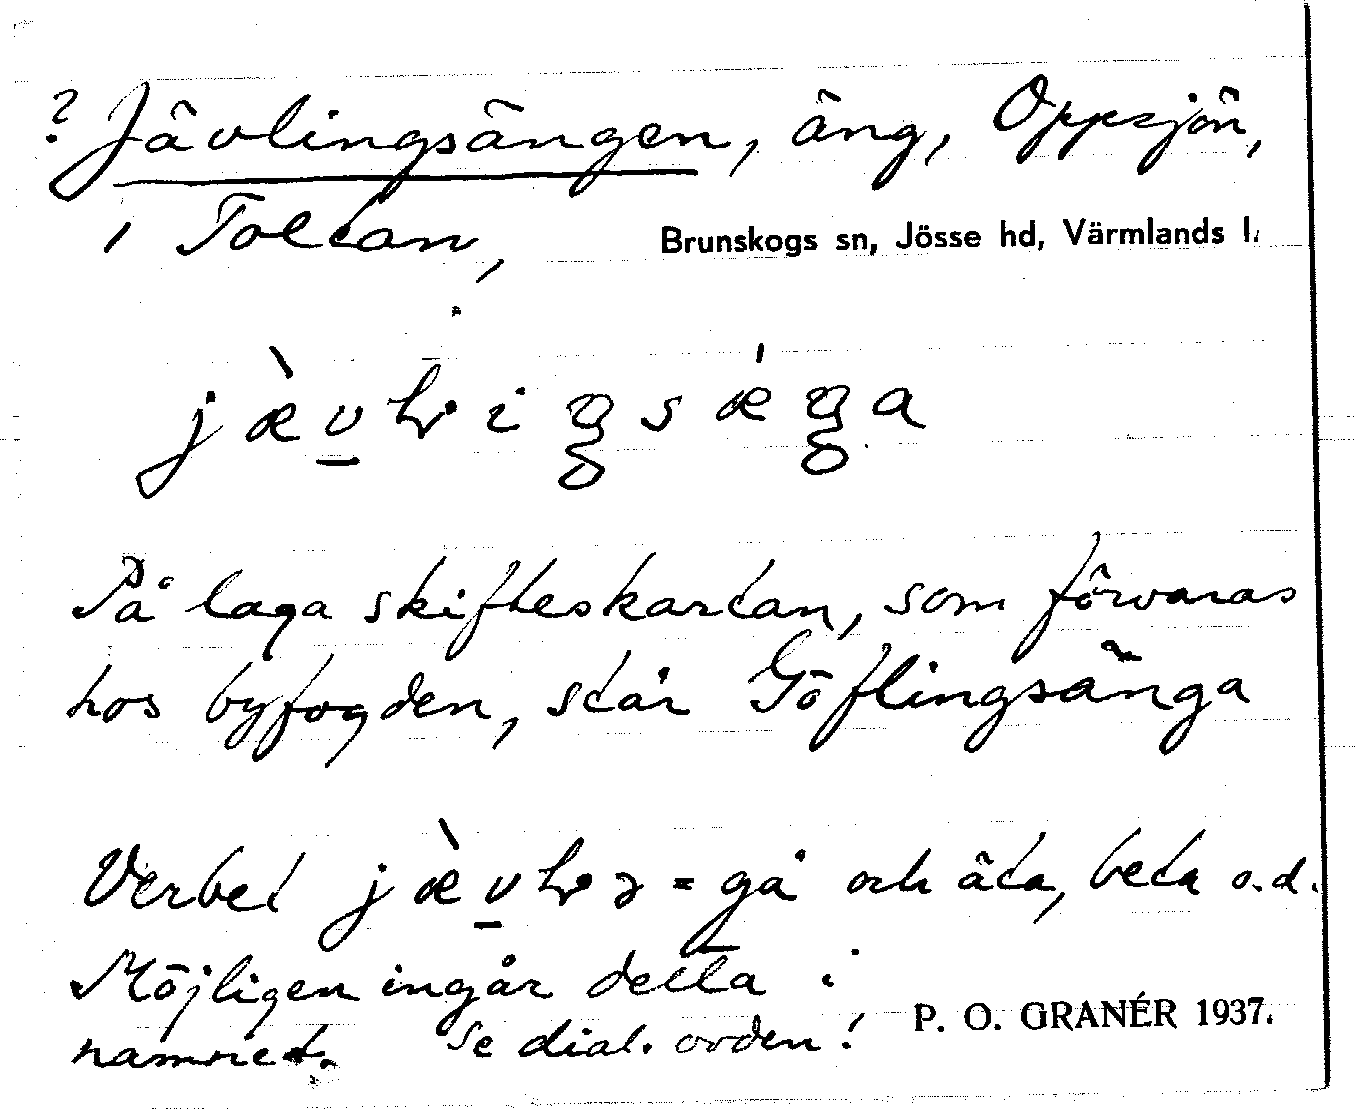 ? Jävlingsängen, äng, Oppsjön,
i Toltan,
Brunskogs sn, Jösse hd, Värmlands l.
På laga skifteskartan, som förvaras
hos byfogden, står Göflingsänga
Verbet = gå och äta, beta o.d.
Möjligen ingår detta i
namnet. Se dial. orden!
P. O. GRANÉR 1937.